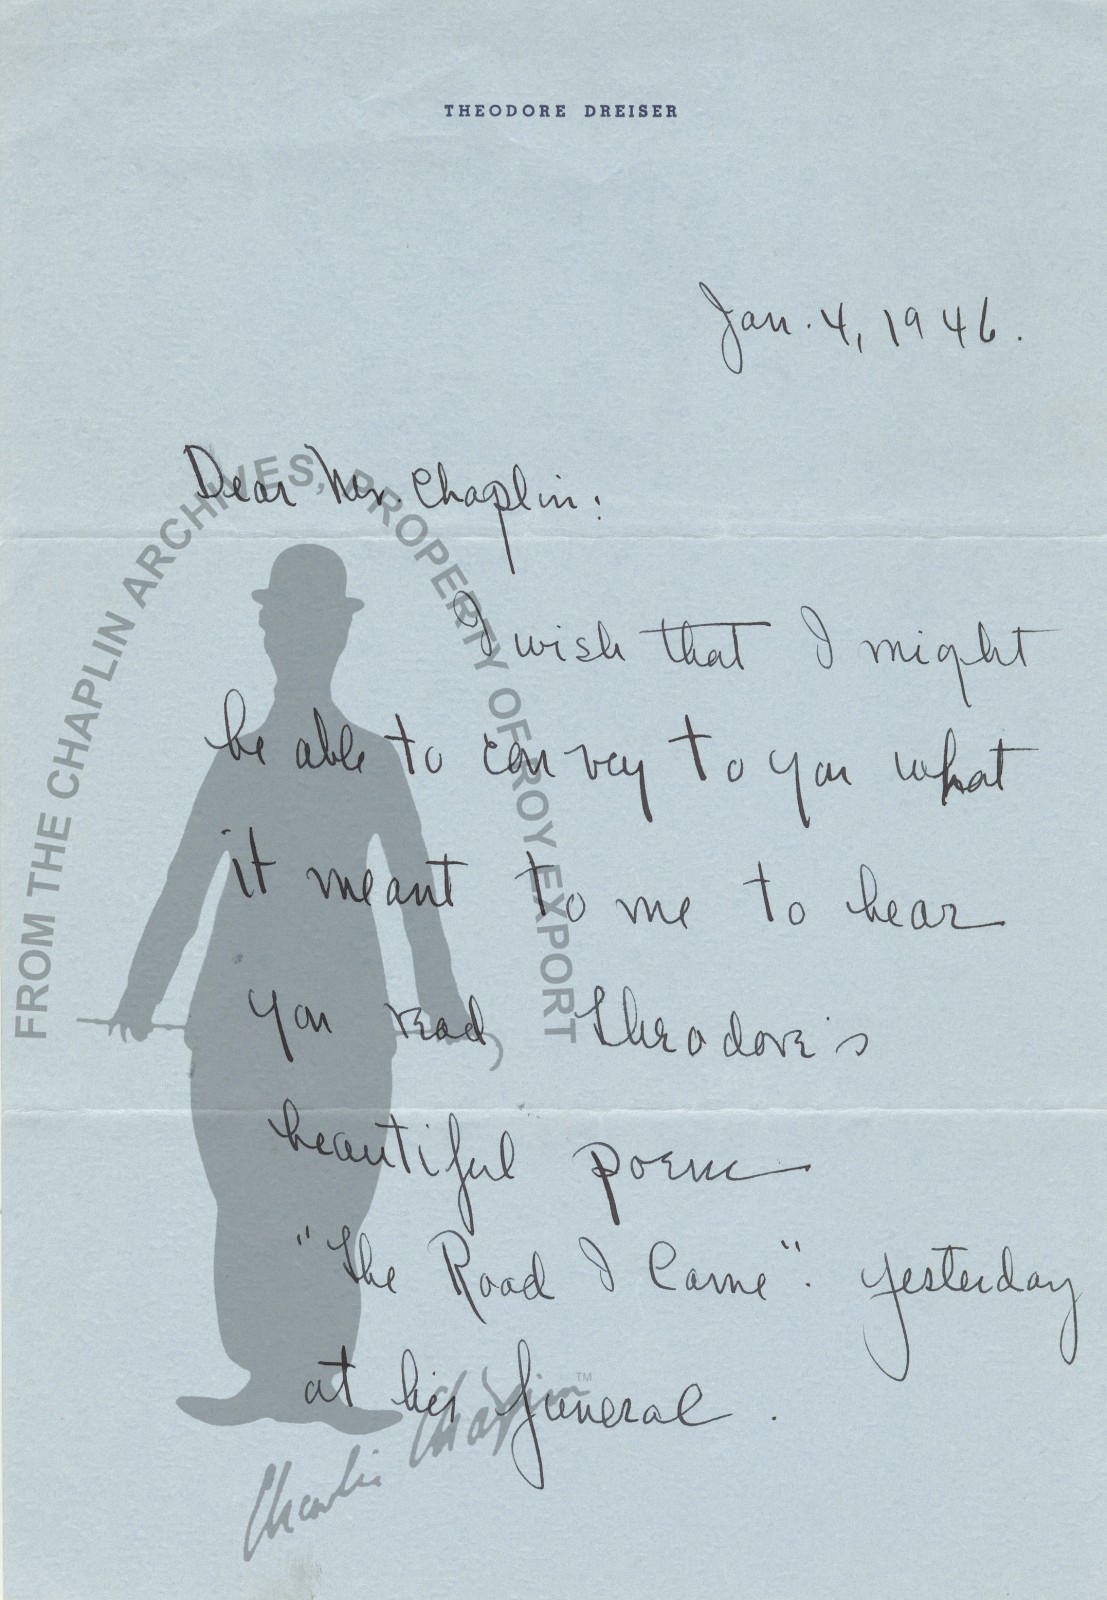 THEODORE DREISER
Jan. 4, 1946.
Dear Mr. Chaplin:
I wish that I might
be able to convey to you what
it meant to me to hear
you read Theodore's
beautiful poem
"The Road I Came". yesterday
at his funeral.
FROM THE CHAPLIN ARCHIVES, PROPERTY OF ROY EXPORT
Charlie Chaplin™